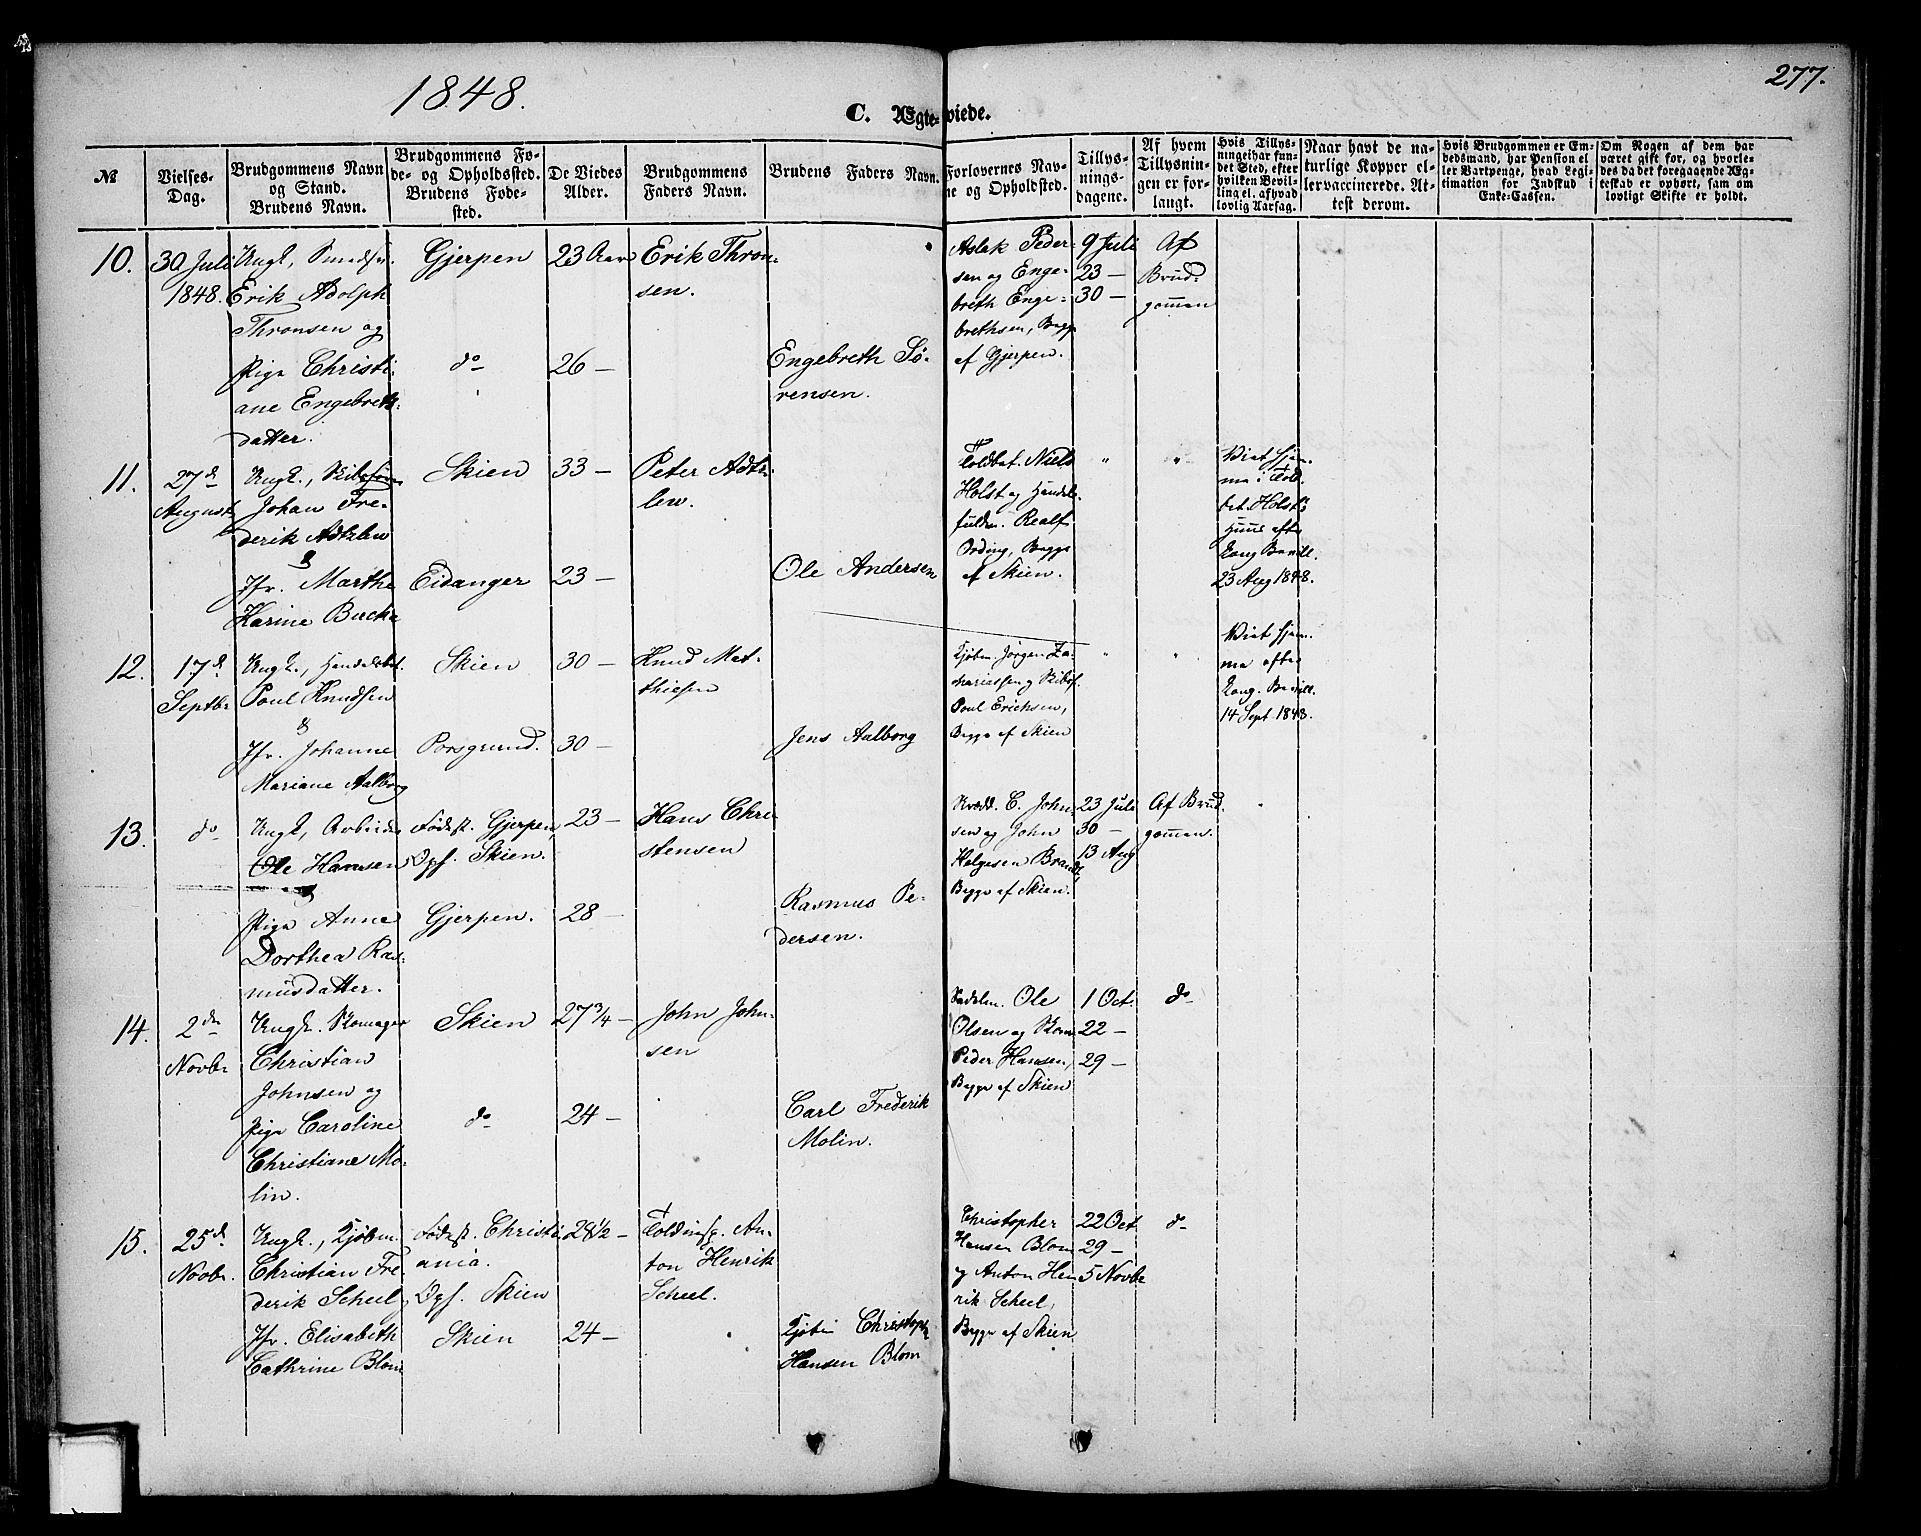 1848.
277.
C. Ægteviede.
№
Vielses-
Dag.
Brudgommens Navn
og Stand.
Brudens Navn.
Brudgommens Fø-
de- og Opholdssted.
Brudens Føde-
sted.
De Viedes
Alder.
Brudgommens
Faders Navn.
Brudens Faders Navn.
Forlovernes Nav-
ne og Opholdsted.
Tillys-
nings-
dagene.
Af hvem
Tillysnin-
gen er for-
langt.
Hvis Tillys-
ning ei har fun-
det Sted, efter
hvilken Bevil-
ling el. af hvad
lovlig Aarsag.
Naar havt de na-
turlige Kopper el-
ler vaccinerede. At-
test derom.
Hvis Brudgommen er Em-
bedsmand, har Pension el-
ler Vartpenge, hvad Legi-
timation for Indskud i
Enke-Cassen.
Om Nogen af dem har
været gift før, og hvorle-
des da det foregaaende Æg-
teskab er ophørt, samt om
lovligt Skifte er holdt.
10.
30 Juli
1848.
Ungk.,
Erik Adolph
Thronsen og
Pige Christi-
ane Engebreth-
datter.
Gjerpen
do
23 Aar
26 —
Erik Thron-
sen.
Engebreth Sö-
rensen.
Aslak Peder-
sen og Enge-
breth Enge-
brethsen, Begge
af Gjerpen.
9 Juli
23 —
30 —
Af
Brud-
gommen
11.
27 d
August
Ungk.,
Johan Fre-
derik Adtzlew
&
Jfr. Marthe
Karine Backe
Skien
Eidanger
33 —
23 —
Peter Adtz-
lew.
Ole Andersen
Toldbet. Niels
Holst og Handels-
fuldm. Realf
Ording, Begge
af Skien.
"
"
Viet hjem-
me i Told-
bet. Holst's
Huus efter
Kong. Bevill.
23 Aug 1848.
12.
17 d
Septbr
Ungk., Handelsbet.
Poul Knudsen
&
Jfr. Johanne
Mariane Aalborg
Skien
Porsgrund.
30 —
30 —
Knud Mat-
thiesen
Jens Aalborg
Kjöbm. Jörgen Za-
chariassen og Skibsf.
Poul Erichsen,
Begge af Skien
"
"
Viet hjem-
me efter
Kong. Bevill.
14 Sept 1848.
13.
do
Ungk., Arbeider
Ole Hansen
&
Pige Anne
Dorthea Ras-
musdatter.
Födest. Gjerpen,
Oph. Skien.
Gjerpen.
23 —
28 —
Hans Chri-
stensen
Rasmus Pe-
dersen.
C. John-
sen og John
Helgesen Brandt,
Begge af Skien.
23 Juli
30 —
13 Aug
Af Brud-
gommen.
14.
2 den
Novbr
Ungk. Skomager
Christian
Johnsen og
Pige Caroline
Christiane Mo-
lin.
Skien
do
27 3/4 —
24 —
John John-
sen
Carl Frederik
Molin.
Sadelm. Ole
Olsen og Skom.
Peder Hansen,
Begge af Skien
1 Oct.
22 —
29 —
do
15.
25 d
Novbr.
Ungk., Kjöbm.
Christian Fre-
derik Scheel,
Jfr. Elisabeth
Cathrine Blom
Födest. Christi-
ania.
Oph. Skien
Skien
28 1/2 —
24 —
Toldinsp. An-
ton Henrik
Scheel.
Kjöbm. Christoph
Hansen Blom
Christopher
Hansen Blom
og Anton Hen-
rik Scheel,
Begge af Skien
22 Oct.
29 —
5 Novbr
do